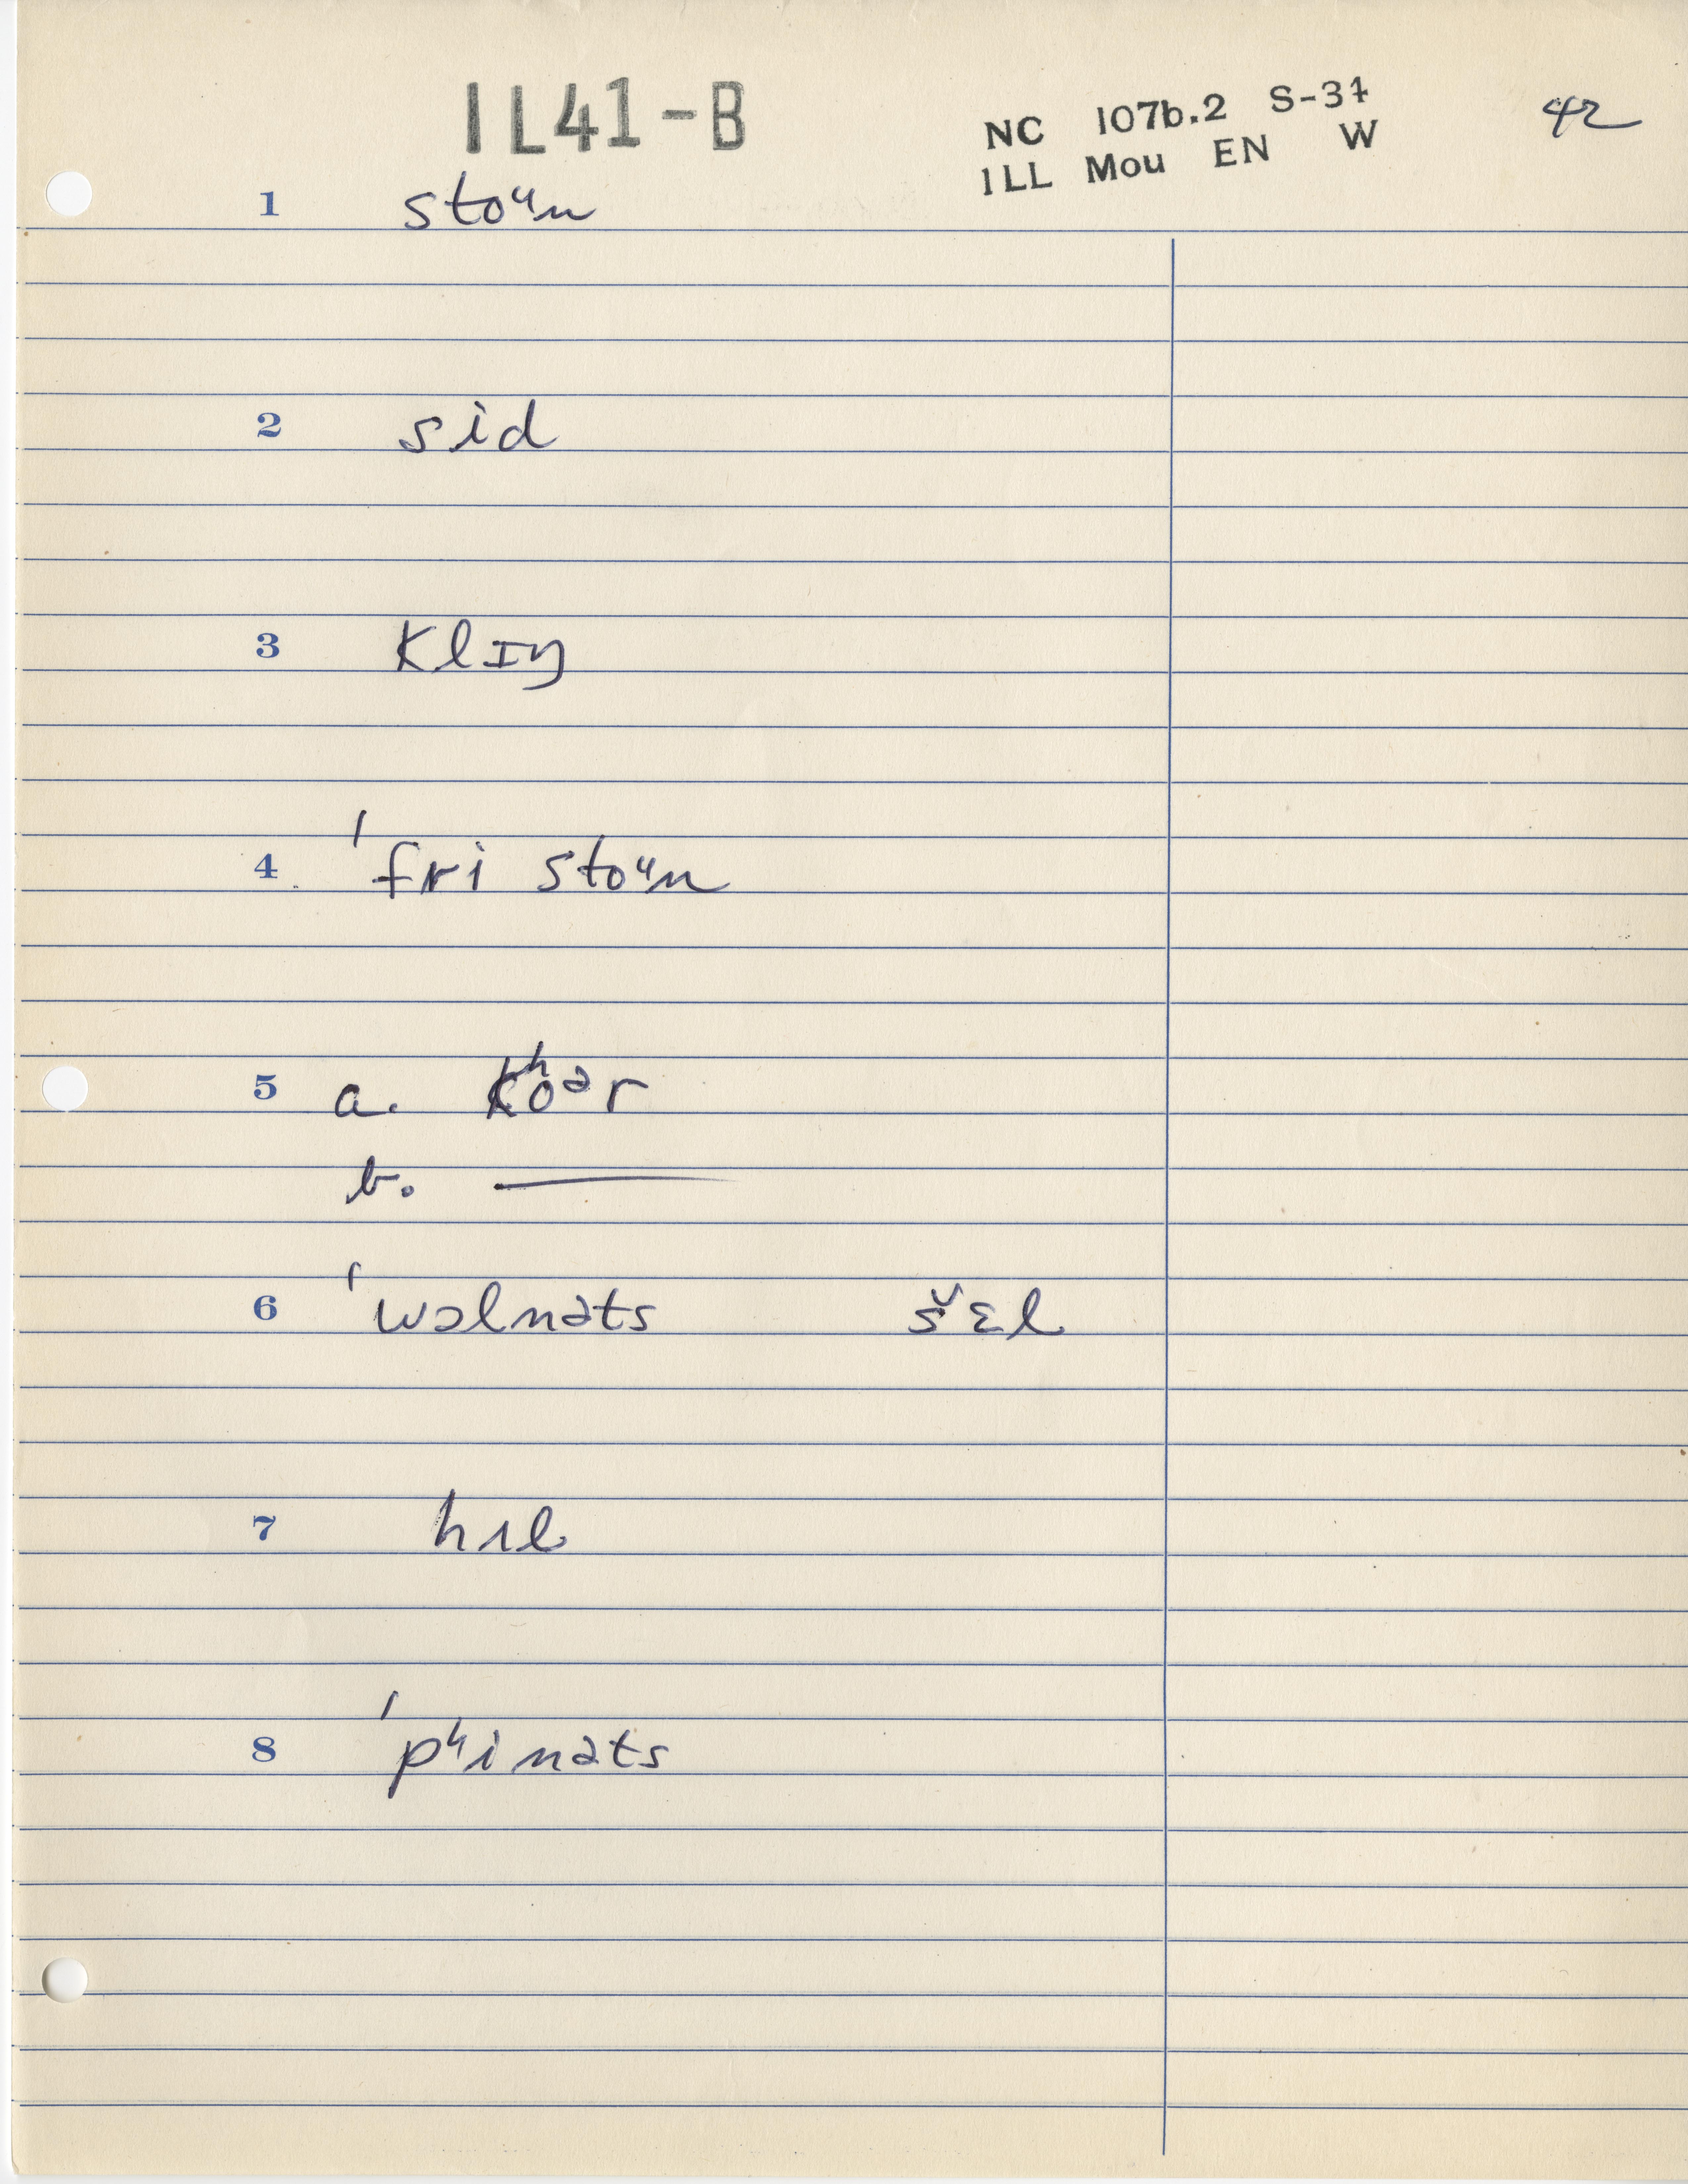 IL41-B
NC 107b.2 S-31
ILL Mou EN W
42
1 stoᵘn
2 sid
3 klɪŋ
4 ˈfri stoᵘn
5 a. kʰoᵊr
b. —
6 ˈwɔlnəts šɛl
7 hɪl
8 ˈpʰinəts